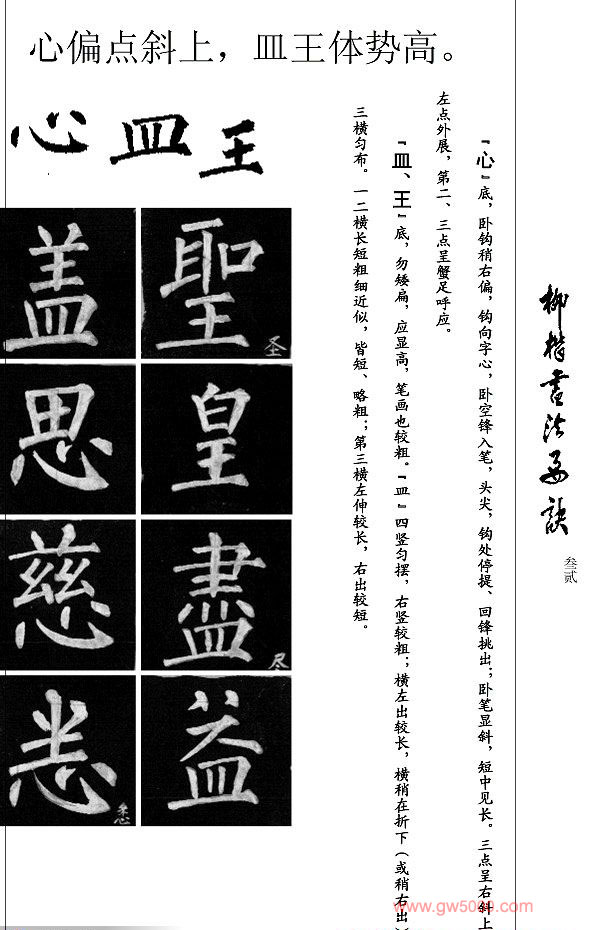 心偏点斜上，皿王体势高。
心 皿 王
盖 聖 圣
思 皇
慈 盡 尽
悉 益
悉
“心”底，卧钩稍右偏，钩向字心，卧空锋入笔，头尖，钩处停提、回锋挑出；卧笔显斜，短中见长。三点呈右斜上
左点外展，第二、三点呈蟹足呼应。
“皿、王”底，勿矮扁，应显高，笔画也较粗。“皿”四竖匀摆，右竖较粗；横左出较长，横稍在折下（或稍右出）
三横匀布。一二横长短粗细近似，皆短、略粗；第三横左伸较长，右出较短。
柳楷书法要诀
叁贰
www.gw5000.com